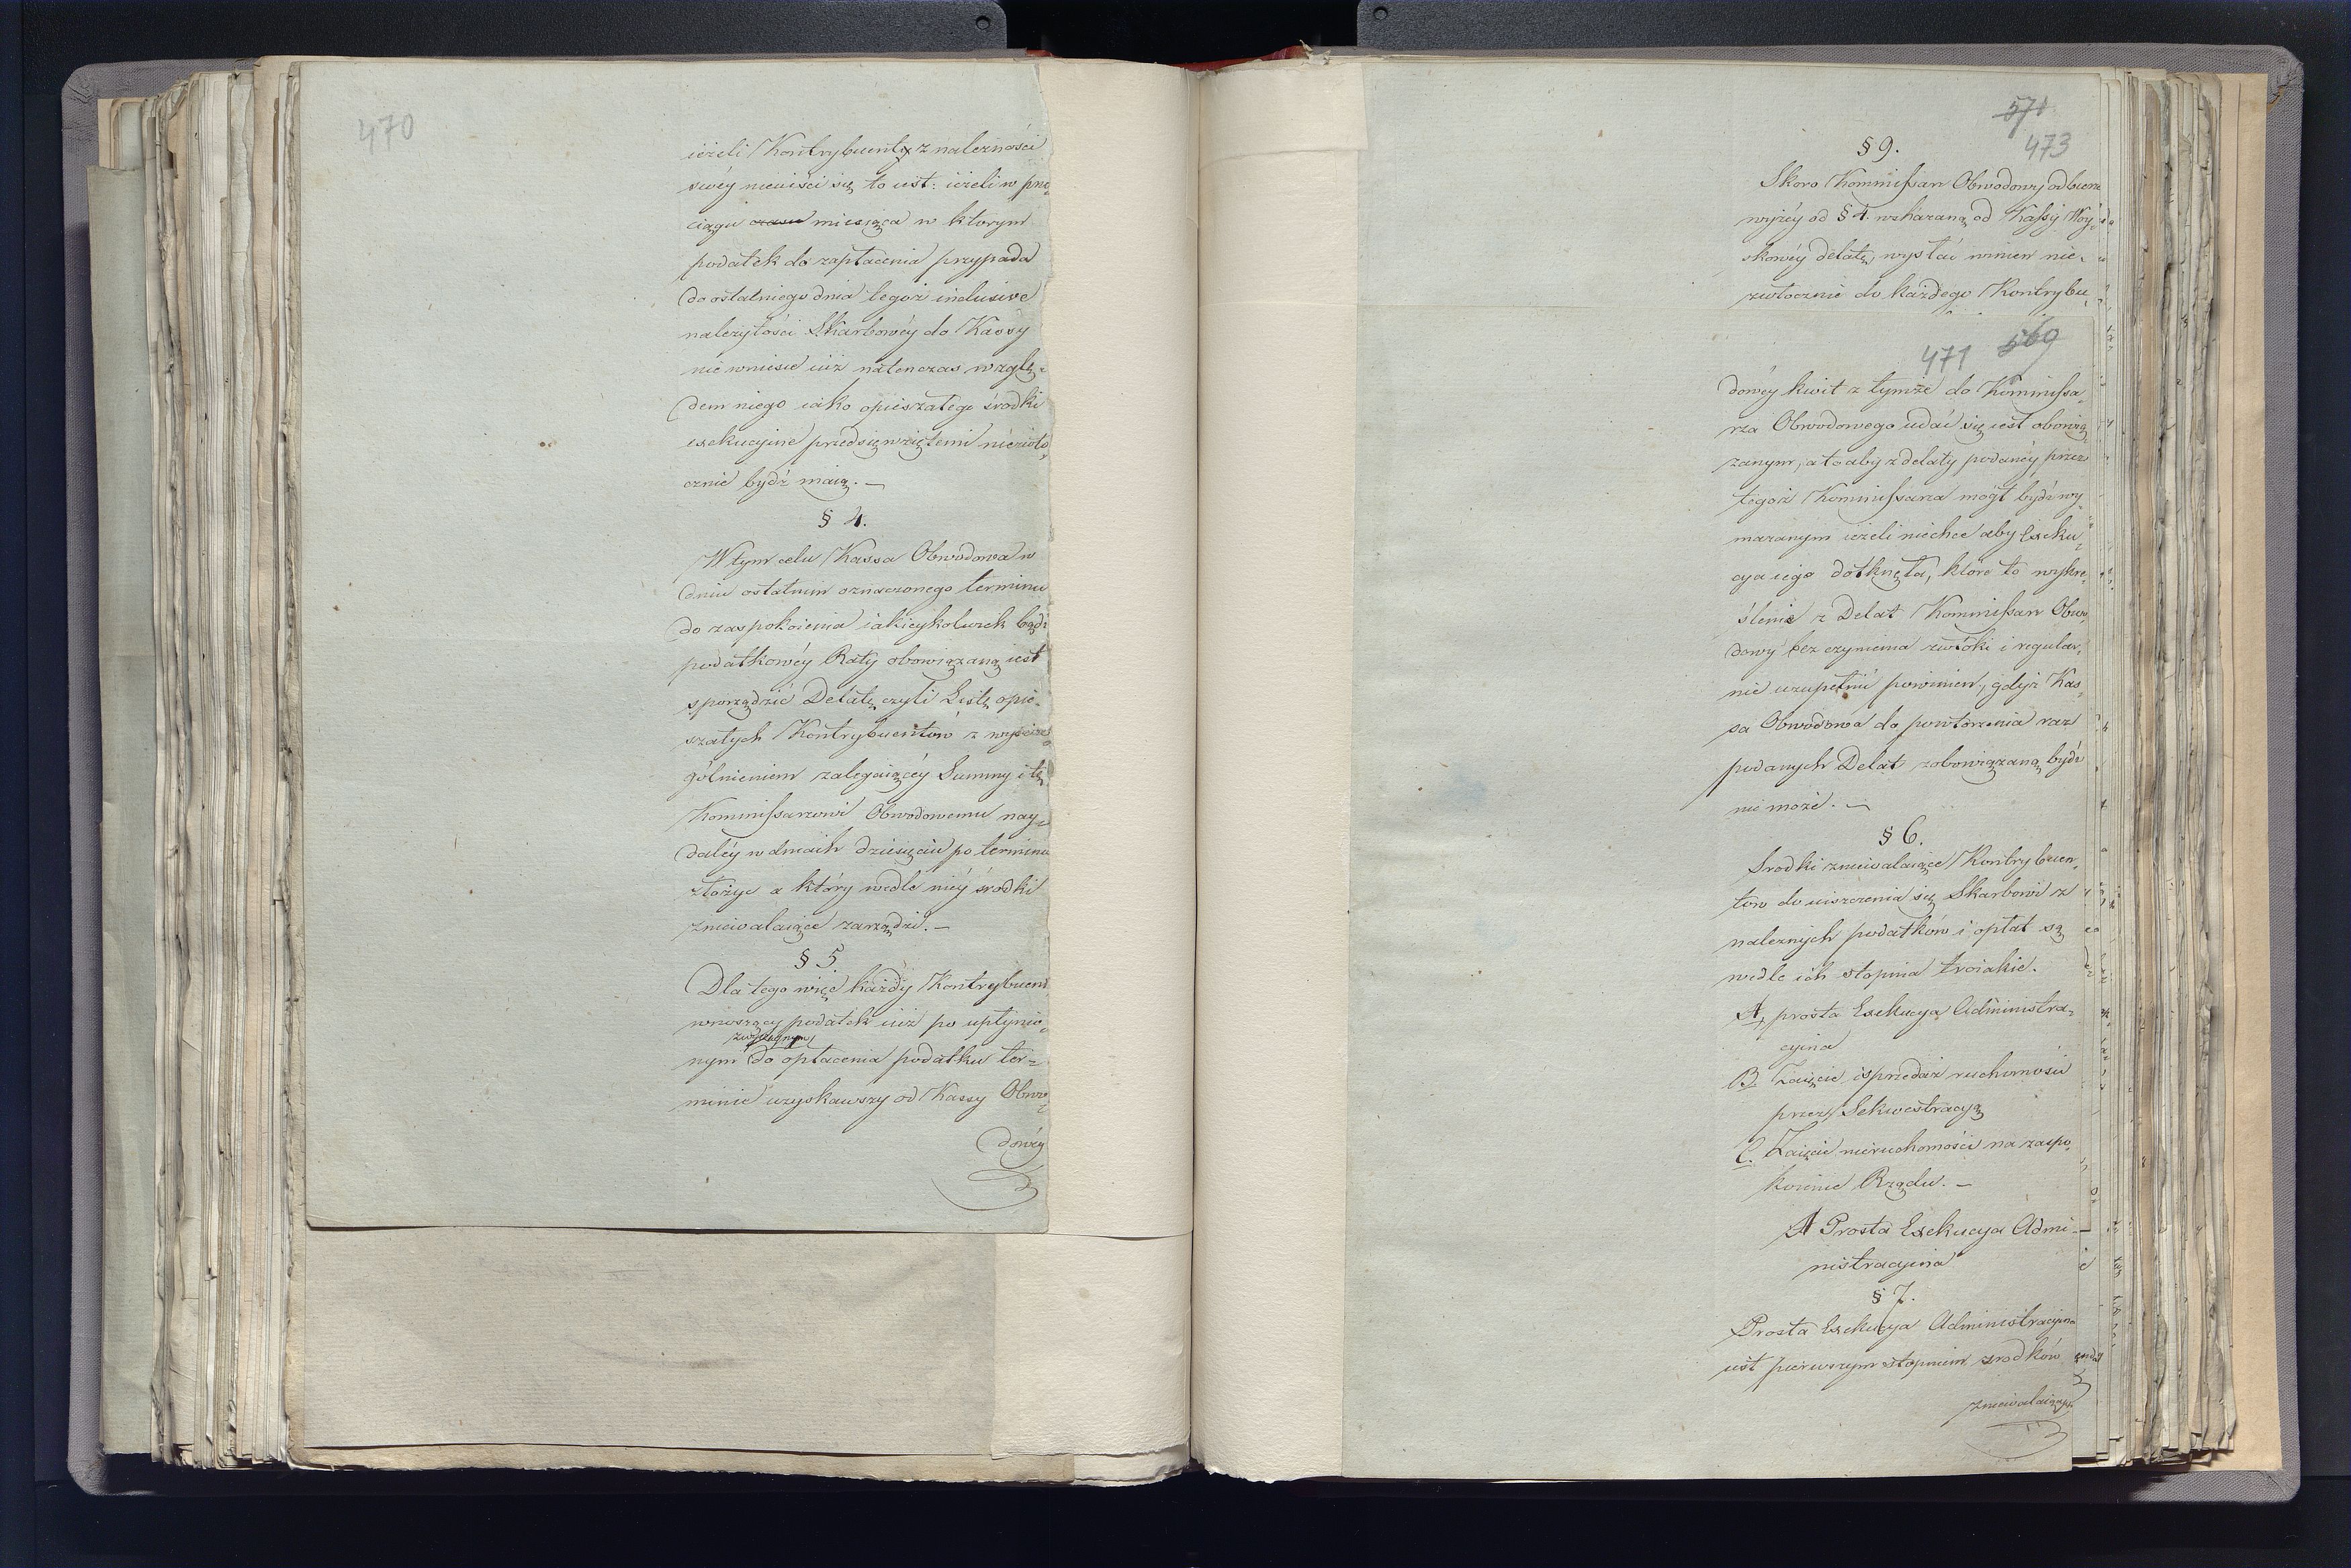 470
ieżeli Kontrybuent z należności
swéy nieuiści się to iest: ieżeli w prze,
ciągu czasu miesiąca w którym
podatek do zapłacenia przypada
do ostatniego dnia tegoż inclusive
należytości Skarbowéy do Kassy
nie wniesie iuż natenczas wzglę-
dem niego iako opieszałego środki
exekucyine przedsięwziętemi niezwło,
cznie bydź maią. —
§ 4.
W tym celu Kassa Obwodowa w
dniu ostatnim oznaczonego terminu
do zaspokoienia iakieykolwiek bądź
podatkowéy Raty obowiązaną iest
sporządzić Delatę czyli Listę opie-
szałych Kontrybuentów z wyszcze
gólnieniem zalegaiącéy Summy i tę
Kommissarzowi Obwodowemu nay-
daléy w dniach dziesięciu po terminie
złożyć a który wedle niéy środki
zniewalaiące zarządzi. —
§ 5
Dla tego więc każdy Kontrybuent
wnoszący podatek iuż po upłynio-
zwykłym
nym do opłacenia podatku ter-
minie uzyskawszy od Kassy Obwo-
dowéy
571
473
§ 9.
Skoro Kommissarz Obwodowy odbierze
wyżéy od § 4. wskazaną od Kassy Woy-
skowéy delatę, wysłać winien nie-
zwłocznie do każdego Kontrybu,
471 569
dowéy kwit z tymże do Kommissa,
rza Obwodowego udać się iest obowią
zanym, a to aby z delaty podanéy przez
tegoż Kommissarza mógł bydź wy,
mazanym ieżeli niechce aby Exeku
cya iego dotknęła, które to wykre,
ślenie z Delat Kommissarz Obwo,
dowy bez czynienia zwłoki i regular,
nie uzupełnić powinien, gdyż Kas,
sa Obwodowa do powtórzenia raz
podanych Delat zobowiązaną bydź
nie może. —
§ 6.
Srodki zniewalaiące Kontrybuen,
tow do uiszczenia się Skarbowi z
należnych podatków i opłat są
wedle ich stopnia troiakie.
A, prosta Exekucya Administra-
cyina
B. Zaięcie i sprzedaż ruchomości
przez Sekwestracyą
C. Zaięcie nieruchomości na zaspo,
koienie Rządu. —
A Prosta Exekucya Admi-
nistracyina
§ 7.
Prosta Exekucya Administracyina
iest pierwszym stopniem srodków
zniewalaiących